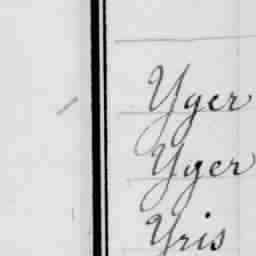 Yger
Yger
Yris